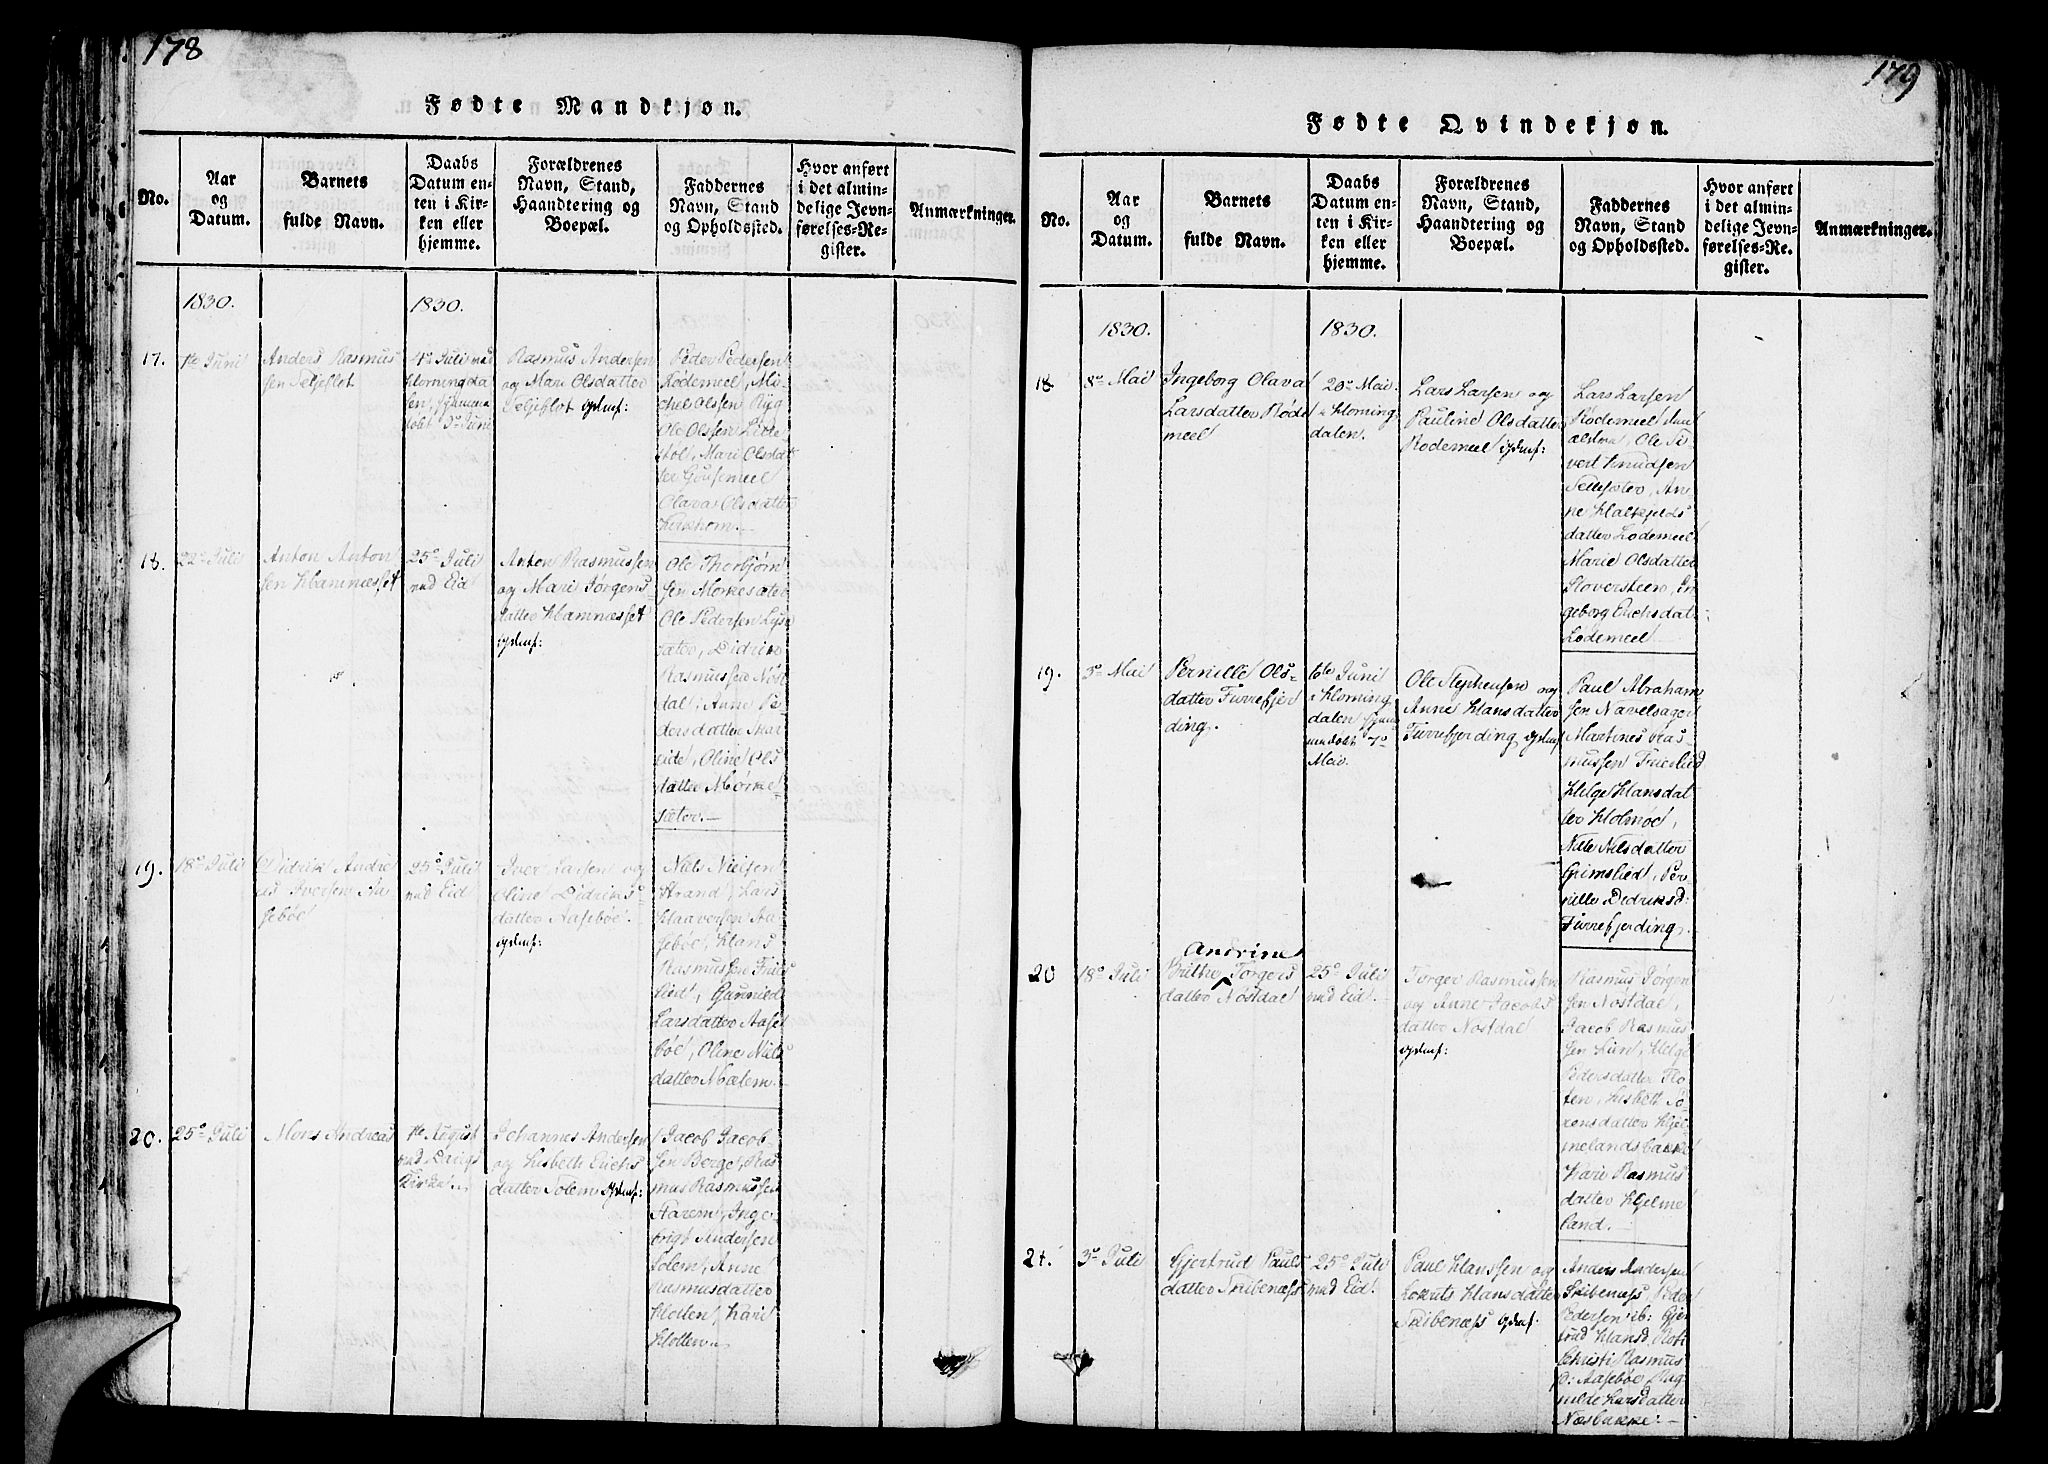 178
Fødte Mandkjøn.
No.
Aar
og
Datum.
Barnets
fulde Navn.
Daabs
Datum en-
ten i Kir-
ken eller
hjemme.
Forældrenes
Navn, Stand,
Haandtering og
Boepæl.
Faddernes
Navn, Stand
og Opholdssted.
Hvor anført
i det almin-
delige Jevn-
førelses-Re-
gister.
Anmærkninger.
1830.
1830.
17.
1te Juni
Anders Rasmus
sen Seljeflot
4de Juli ved
Horningda
len, hjemme
døbt 3de June
Rasmus Andersen
og Mari Olsdatter
Seljeflot
Peder Pedersen
Lødemeel, Mi-
chel Olssen Ryg
Ole Olssen Lille
støl, Mari Olsdat
ter Gousemeel
Olava Olsdatter
Kirkhorn.
18.
22de Juli
Anton Anton
sen Hamnesset
25de Juli
ved Eid
Anton Rasmussen
og Mari Jørgens
datter Hamnesset
Ole Thorbjørn
sen Mørkesæter
Ole Pedersen Lyse
sæter, Didrik
Rasmussen Nøst
dal, Anne Pe
dersdatter Mar
eide, Oline Ols
datter Mørke-
sæter.
19.
18de Juli
Didrik Andre
as Iversen Aa
sebøe
25de Juli
ved Eid
Iver Larsen og
Oline Didriks
datter Aasebøe.
Niels Nielsen
Strand, Lars
Haaversen Aa
sebøe, Hans
Rasmussen Friis
lied, Gunnild
Larsdatter Aase
bøe, Oline Niels
datter Mælem.
20.
25de Juli
Mons Andreas
1te August
ved Davigs
Kirke
Johannes Andersen
og Lisbeth Erichs
datter Solem
Jacob Jacob-
sen Berge, Ras
mus Rasmussen
Aarem, Inge-
brigt Andersen
Solem, Anne
Rasmusdatter
Hotten, Kari
Hotten
179
Fødte Qvindekjøn.
No.
Aar
og
Datum.
Barnets
fulde Navn.
Daabs
Datum en-
ten i Kir-
ken eller
hjemme.
Forældrenes
Navn, Stand,
Haandtering og
Boepæl.
Faddernes
Navn, Stand
og Opholdssted.
Hvor anført
i det almin-
delige Jevn-
førelses-Re-
gister.
Anmærkninger.
1830.
1830.
18
8de Mai
Ingeborg Olava
Larsdatter Røde
meel
20de Mai
i Horning
dalen.
Lars Larsen og
Pauline Olsdatter
Rødemeel
Lars Larsen
Rødemeel
Ole Si-
vert Knudsen
Tellesæter, An-
ne Halkjelds
datter Lødemeel
Marie Olsdatter
Hoversteen, In
geborg Erichsdat:
Lødemeel
19.
5de Mai
Pernille Ols-
datter Furrefjer
ding.
6te Juni
i Horning
dalen hjem
medøbt 7de
Mai.
Ole Stephensen og
Anne Hansdatter
Furrefjerding
Paul Abraham
sen Navelsager
Martines Ras-
mussen Friislied
Helge Hansdat
ter Holmøe,
Nille Nilsdatter
Grimslied, Per
nille Dedriksd
Furrefjerding.
20
18de Juli
Andrine
Brithe Torgers
datter Nøstdal
25de Juli
ved Eid.
Torger Rasmussen
og Anne Jacobs
datter Nøstdal
Rasmus Jørgen
sen Nøstdal,
Jacob Rasmus
sen Lien, Helge
Pedersdatter Flo-
ten, Lisbeth Sø-
rensdatter Hjel
melandsbakke
Kari Rasmus
datter Hjelme
land.
21.
3de Juli
Gjertrud Pauls
datter Skibenæss
25de Juli
ved Eid.
Paul Hanssen og
Lokuts Hansdatter
Skibenæss
Anders Andersen
Skibenæss, Peder
Pedersen ib: Gjer
trud Hansd
Christi Rasmus
d: Aasebøe, Rag
nilde Larsdatter
Næsbakke: